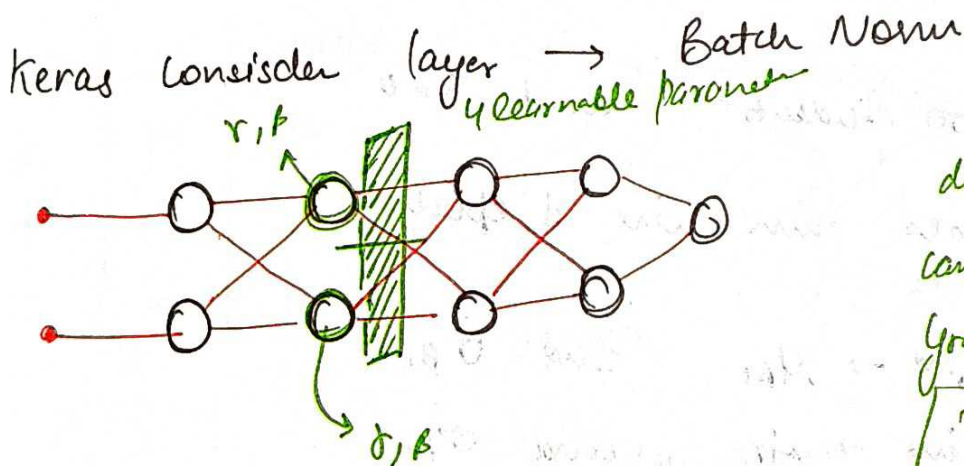 Keras Consisder layer → Batch Norm
4 learnable paramet
γ, β
γ, β